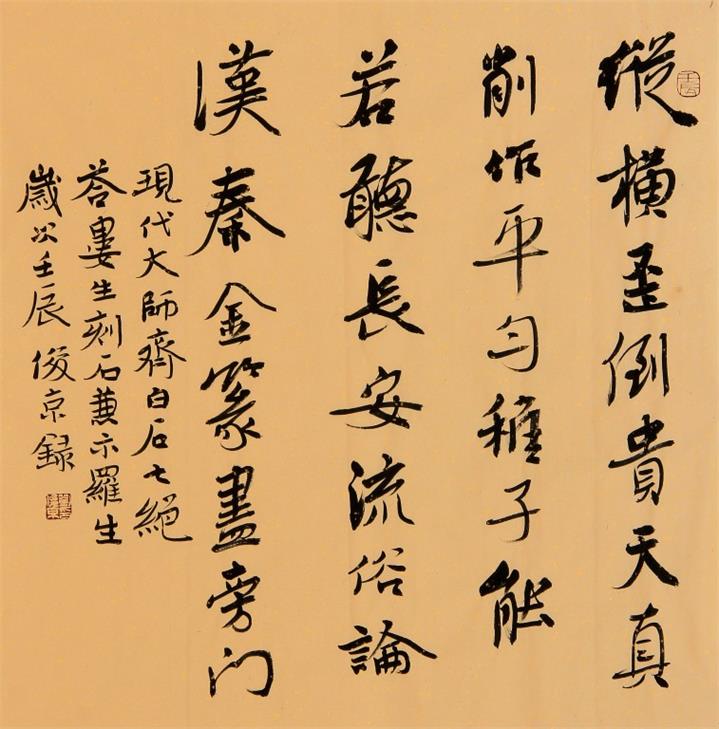 縱横歪倒貴天真
削作平匀稚子能
若聽長安流俗論
漢秦金篆盡旁门
現代大師齊白石七絕
荅婁生刻石兼示羅生
歲次壬辰俊京録